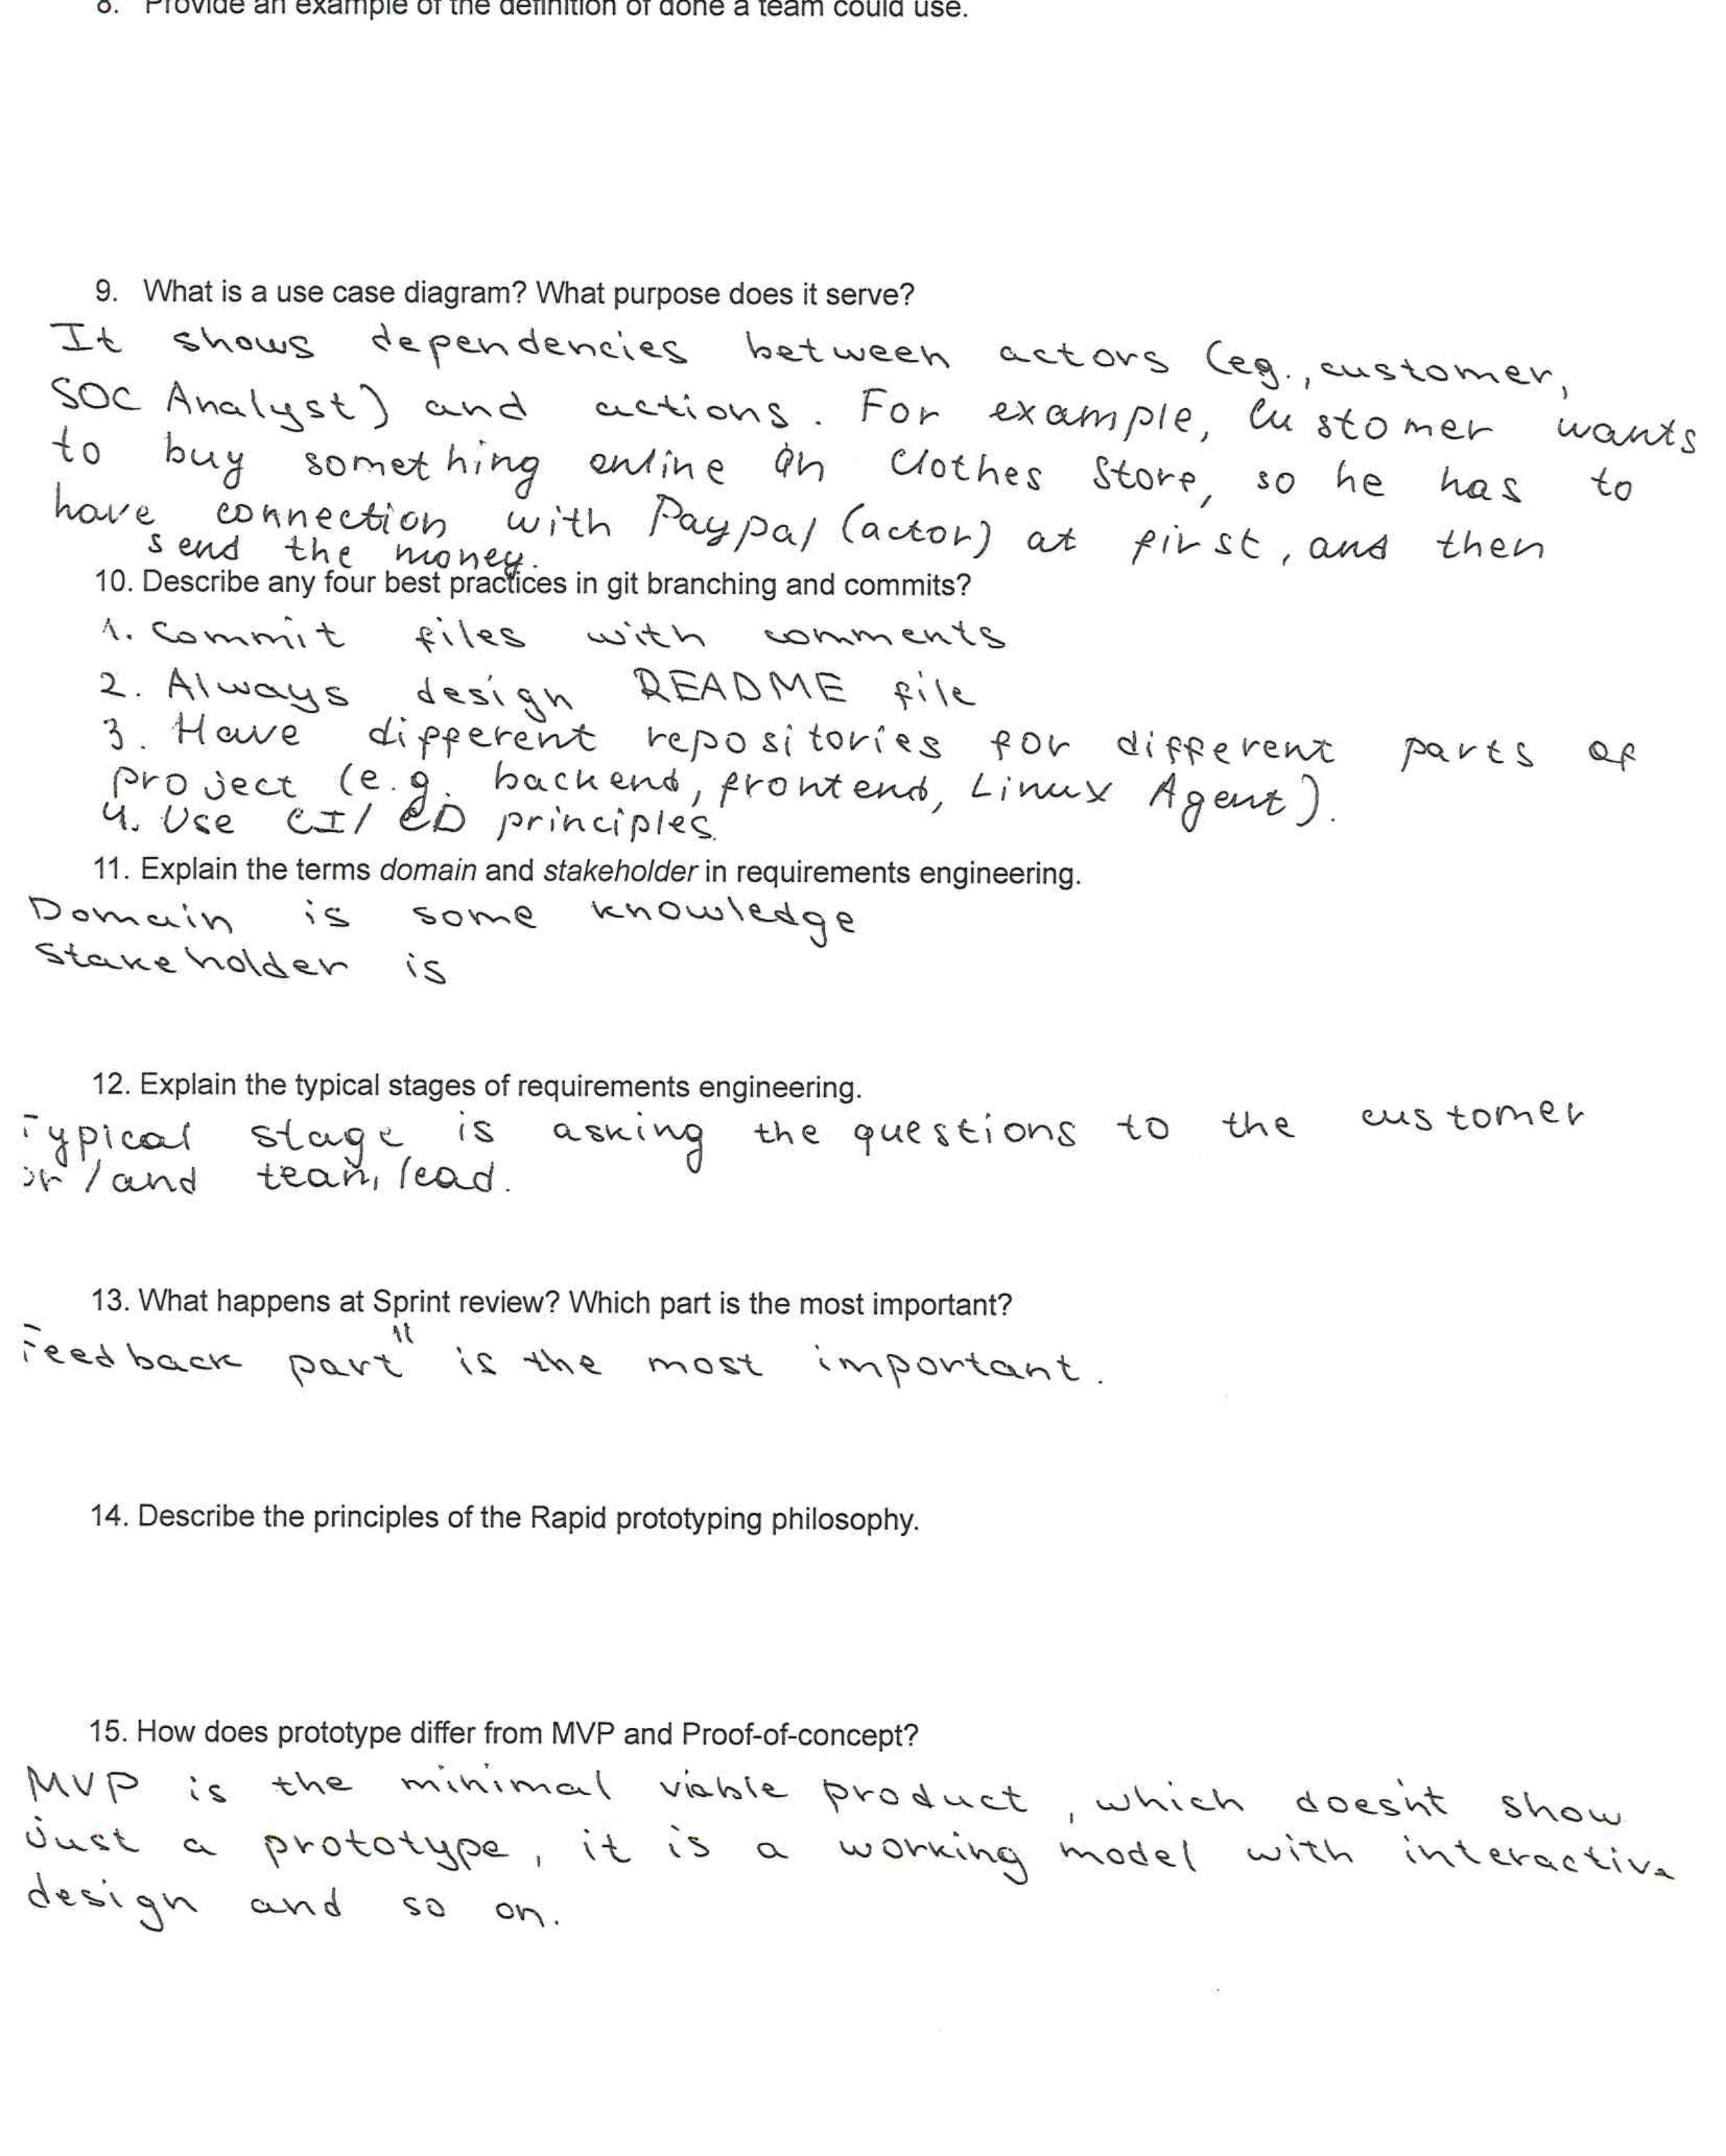 8. Provide an example of the definition of done a team could use.
9. What is a use case diagram? What purpose does it serve?
It shows dependencies between actors (eg., customer,
SOC Analyst) and actions. For example, Customer wants
to buy something online on Clothes Store, so he has to
have connection with Paypal (actor) at first, and then
send the money.
10. Describe any four best practices in git branching and commits?
1. Commit files with comments
2. Always design README file
3. Have different repositories for different parts of
project (e.g. backend, frontend, Linux Agent).
4. Use CI/CD principles.
11. Explain the terms domain and stakeholder in requirements engineering.
Domain is some knowledge
Stakeholder is
12. Explain the typical stages of requirements engineering.
Typical stage is asking the questions to the customer
or/and team lead.
13. What happens at Sprint review? Which part is the most important?
Feedback part" is the most important.
14. Describe the principles of the Rapid prototyping philosophy.
15. How does prototype differ from MVP and Proof-of-concept?
MVP is the minimal viable product, which doesn't show
just a prototype, it is a working model with interactive
design and so on.